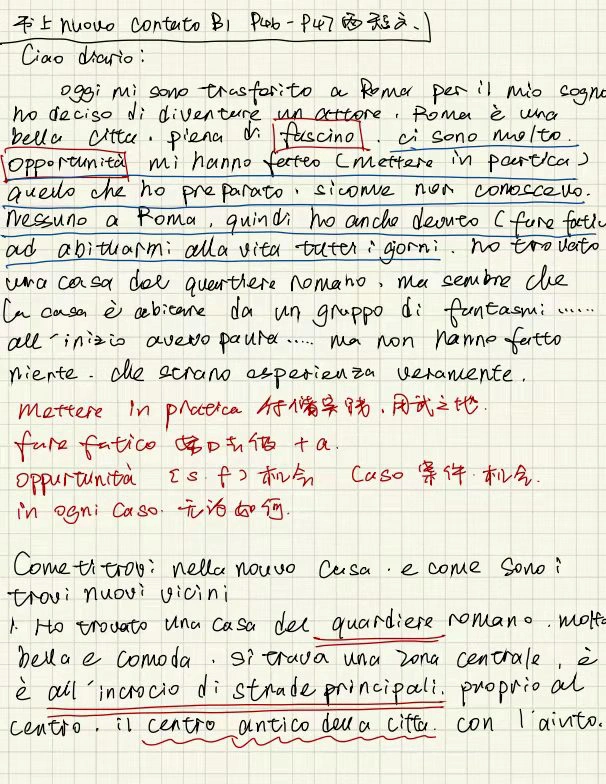 书上 nuovo contato B1 P46-P47 两短文.
Ciao diario:
oggi mi sono trasferito a Roma per il mio sogno
ho deciso di diventare un attore. Roma è una
bella citta. piena di fascino. ci sono molto.
opportunità mi hanno fatto (mettere in partica)
quello che ho preparato. sicome non conoscevo.
nessuno a Roma, quindi ho anche devuto (fare fatic
ad abituarmi alla vita tutti i gorni. ho trovato
una casa del quartiere romano, ma sembre che
la casa è abitane da un gruppo di fantasmi ......
all'inizio avevo paura ..... ma non hanno fatto
niente. che strano esperienza veramente.
mettere in pratica 付诸实践, 用武之地.
fare fatico +a.
oppurtunità [s.f) 机会 Caso 案件. 机会.
in ogni caso. 无论如何.
Come ti trovi nella nouvo casa. e come sono i
trovi nuovi vicini
1. Ho trovato una casa del quardiere romano. molto
bella e comoda. si trava una zona centrale, è
è all'incrocio di strade principali. proprio al
centro. il centro antico della citta. con l'aiuto.